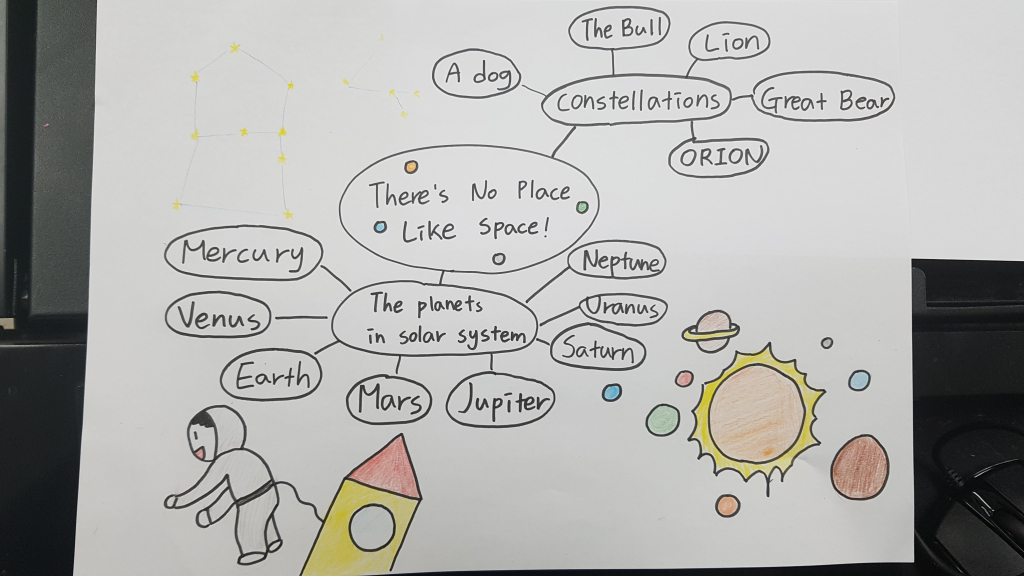 The Bull
Lion
A dog
Constellations
Great Bear
ORION
There's No Place
Like Space!
Mercury
Neptune
Venus
The planets
in solar system
Uranus
Saturn
Earth
Mars
Jupiter